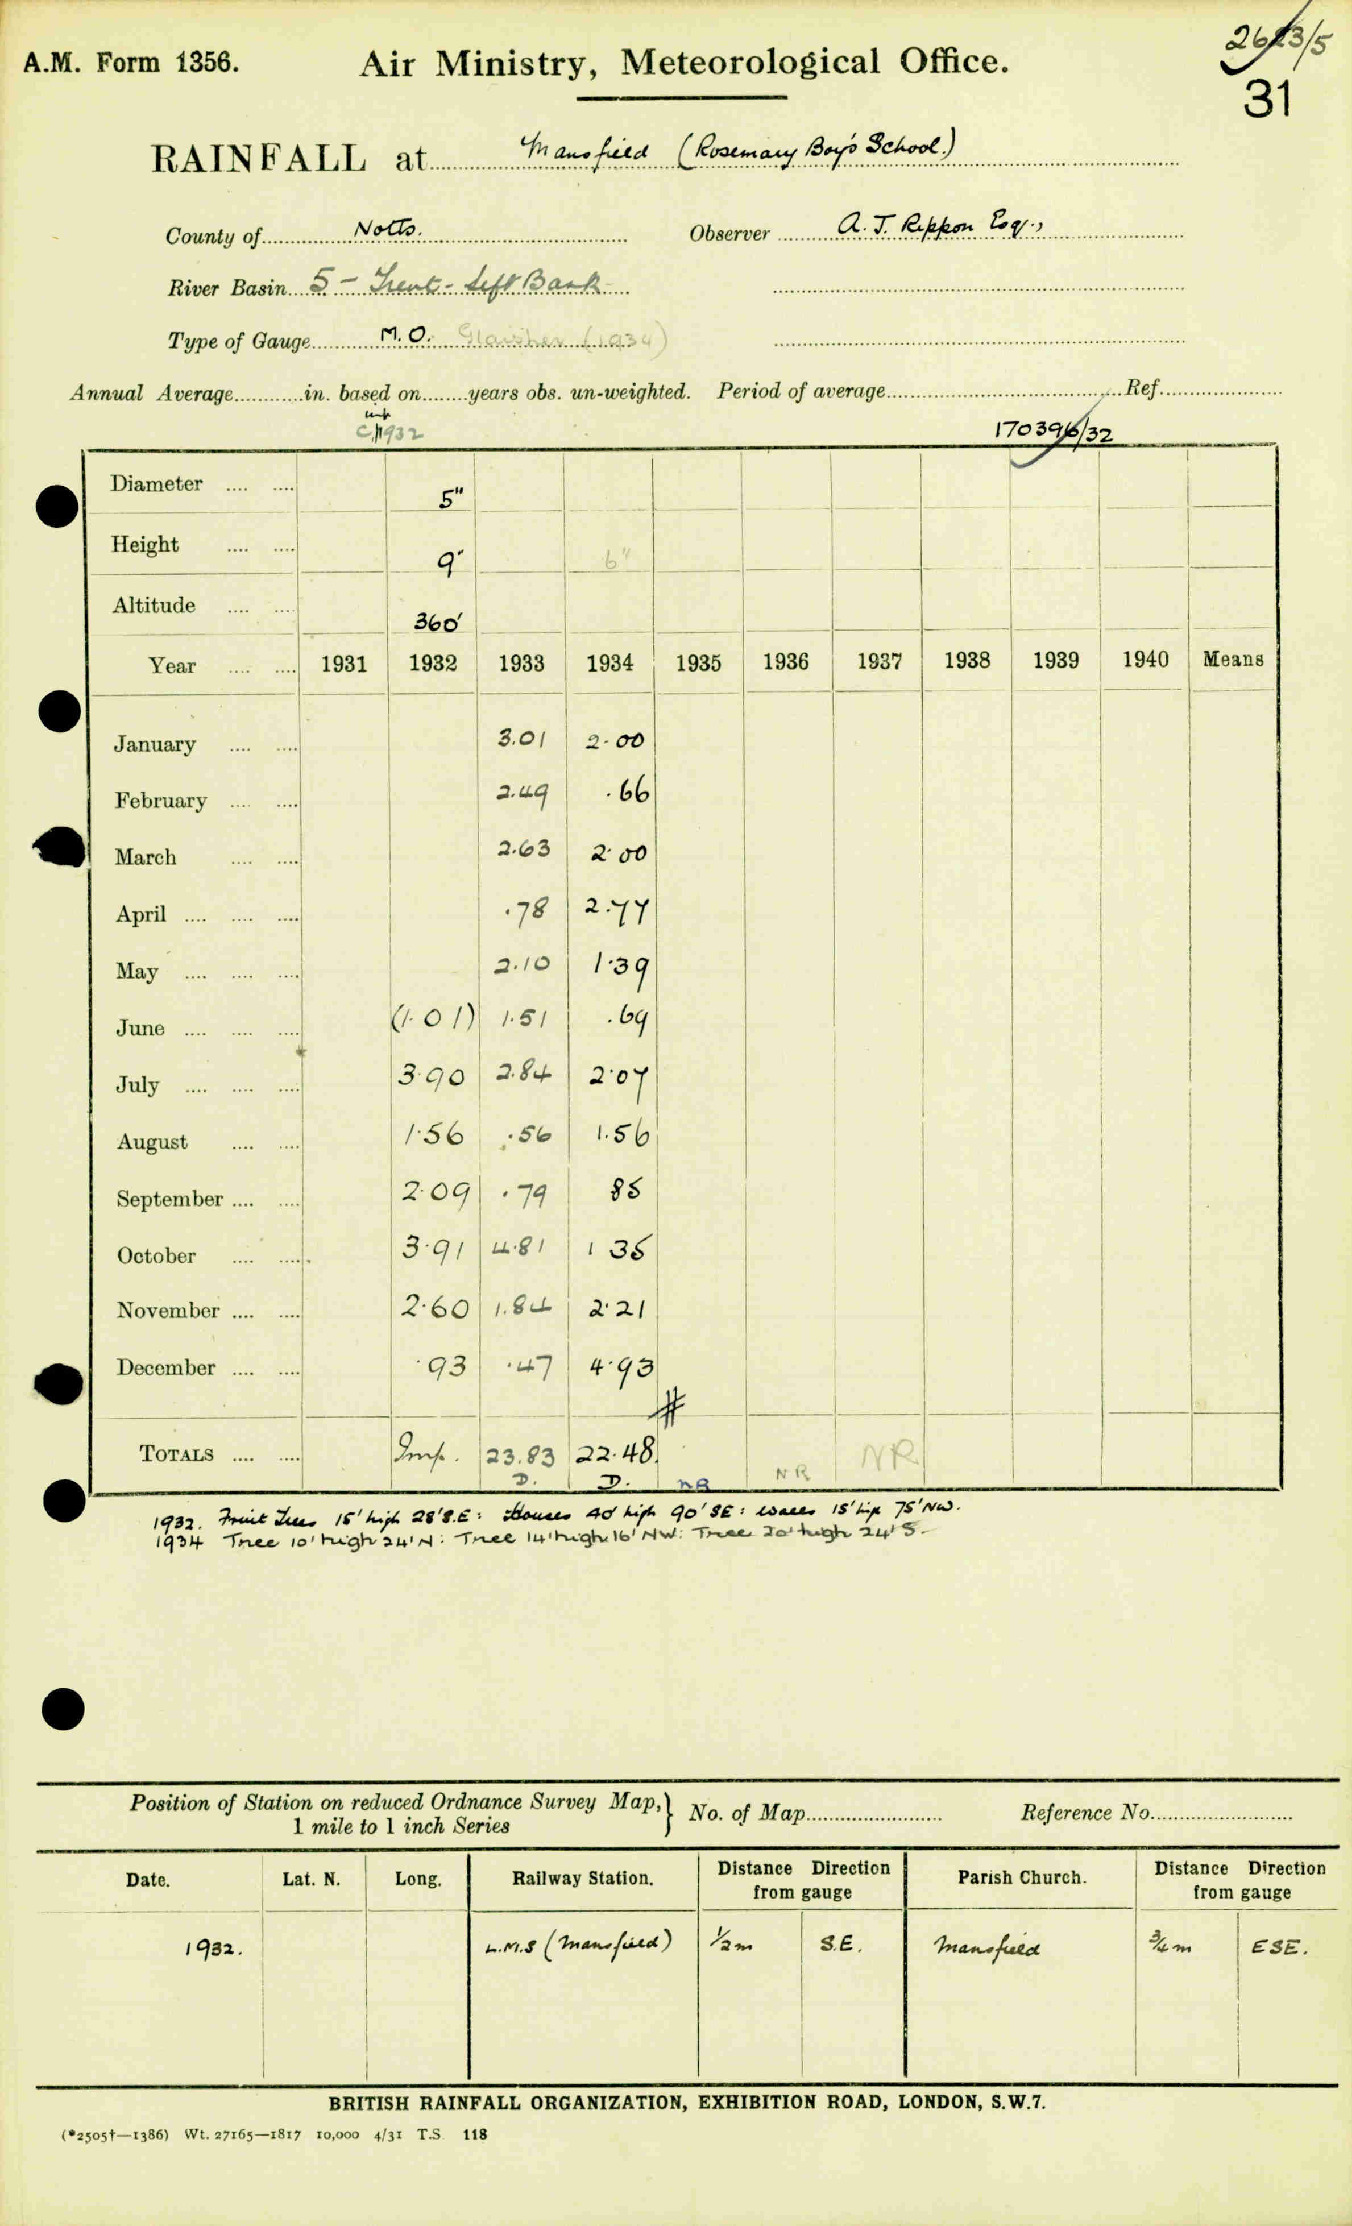 2623/5
A.M. Form 1356. Air Ministry, Meteorological Office.
31
RAINFALL at Mansfield (Rosemary Boy's School.)
County of Notts. Observer A. J. Rippon Esq.,
River Basin 5 - Trent - Left Bank
Type of Gauge M.O. Glaisher (1934)
Annual Average in. based on years obs. un-weighted. Period of average Ref.
1932 170396/32
Diameter .... .... 5"
Height .... .... 9" 6"
Altitude .... .... 360'
Year .... .... 1931 1932 1933 1934 1935 1936 1937 1938 1939 1940 Means
January .... .... 3.01 2.00
February .... .... 2.49 .66
March .... .... 2.63 2.00
April .... .... .... .78 2.77
May .... .... .... 2.10 1.39
June .... .... .... (1.01) 1.51 .69
July .... .... .... 3.90 2.84 2.07
August .... .... 1.56 .56 1.56
September .... .... 2.09 .79 85
October .... .... 3.91 4.81 1 35
November .... .... 2.60 1.84 2.21
December .... .... .93 .47 4.93
#
TOTALS .... .... Imp. 23.83 22.48 NR
D. D. NR NR
1932. Fruit Trees 15' high 28' S.E: Houses 40' high 90' SE: walls 15' high 75' NW.
1934 Tree 10' high 24' N: Tree 14' high 16' NW: Tree 20' high 24' S.
Position of Station on reduced Ordnance Survey Map, } No. of Map Reference No.
1 mile to 1 inch Series
Date. Lat. N. Long. Railway Station. Distance Direction from gauge Parish Church. Distance Direction from gauge
1932. L.M.S (Mansfield) 1/2 m S.E. Mansfield 3/4 m ESE.
BRITISH RAINFALL ORGANIZATION, EXHIBITION ROAD, LONDON, S.W.7.
(*2505†—1386) Wt. 27165—1817 10,000 4/31 T.S. 118